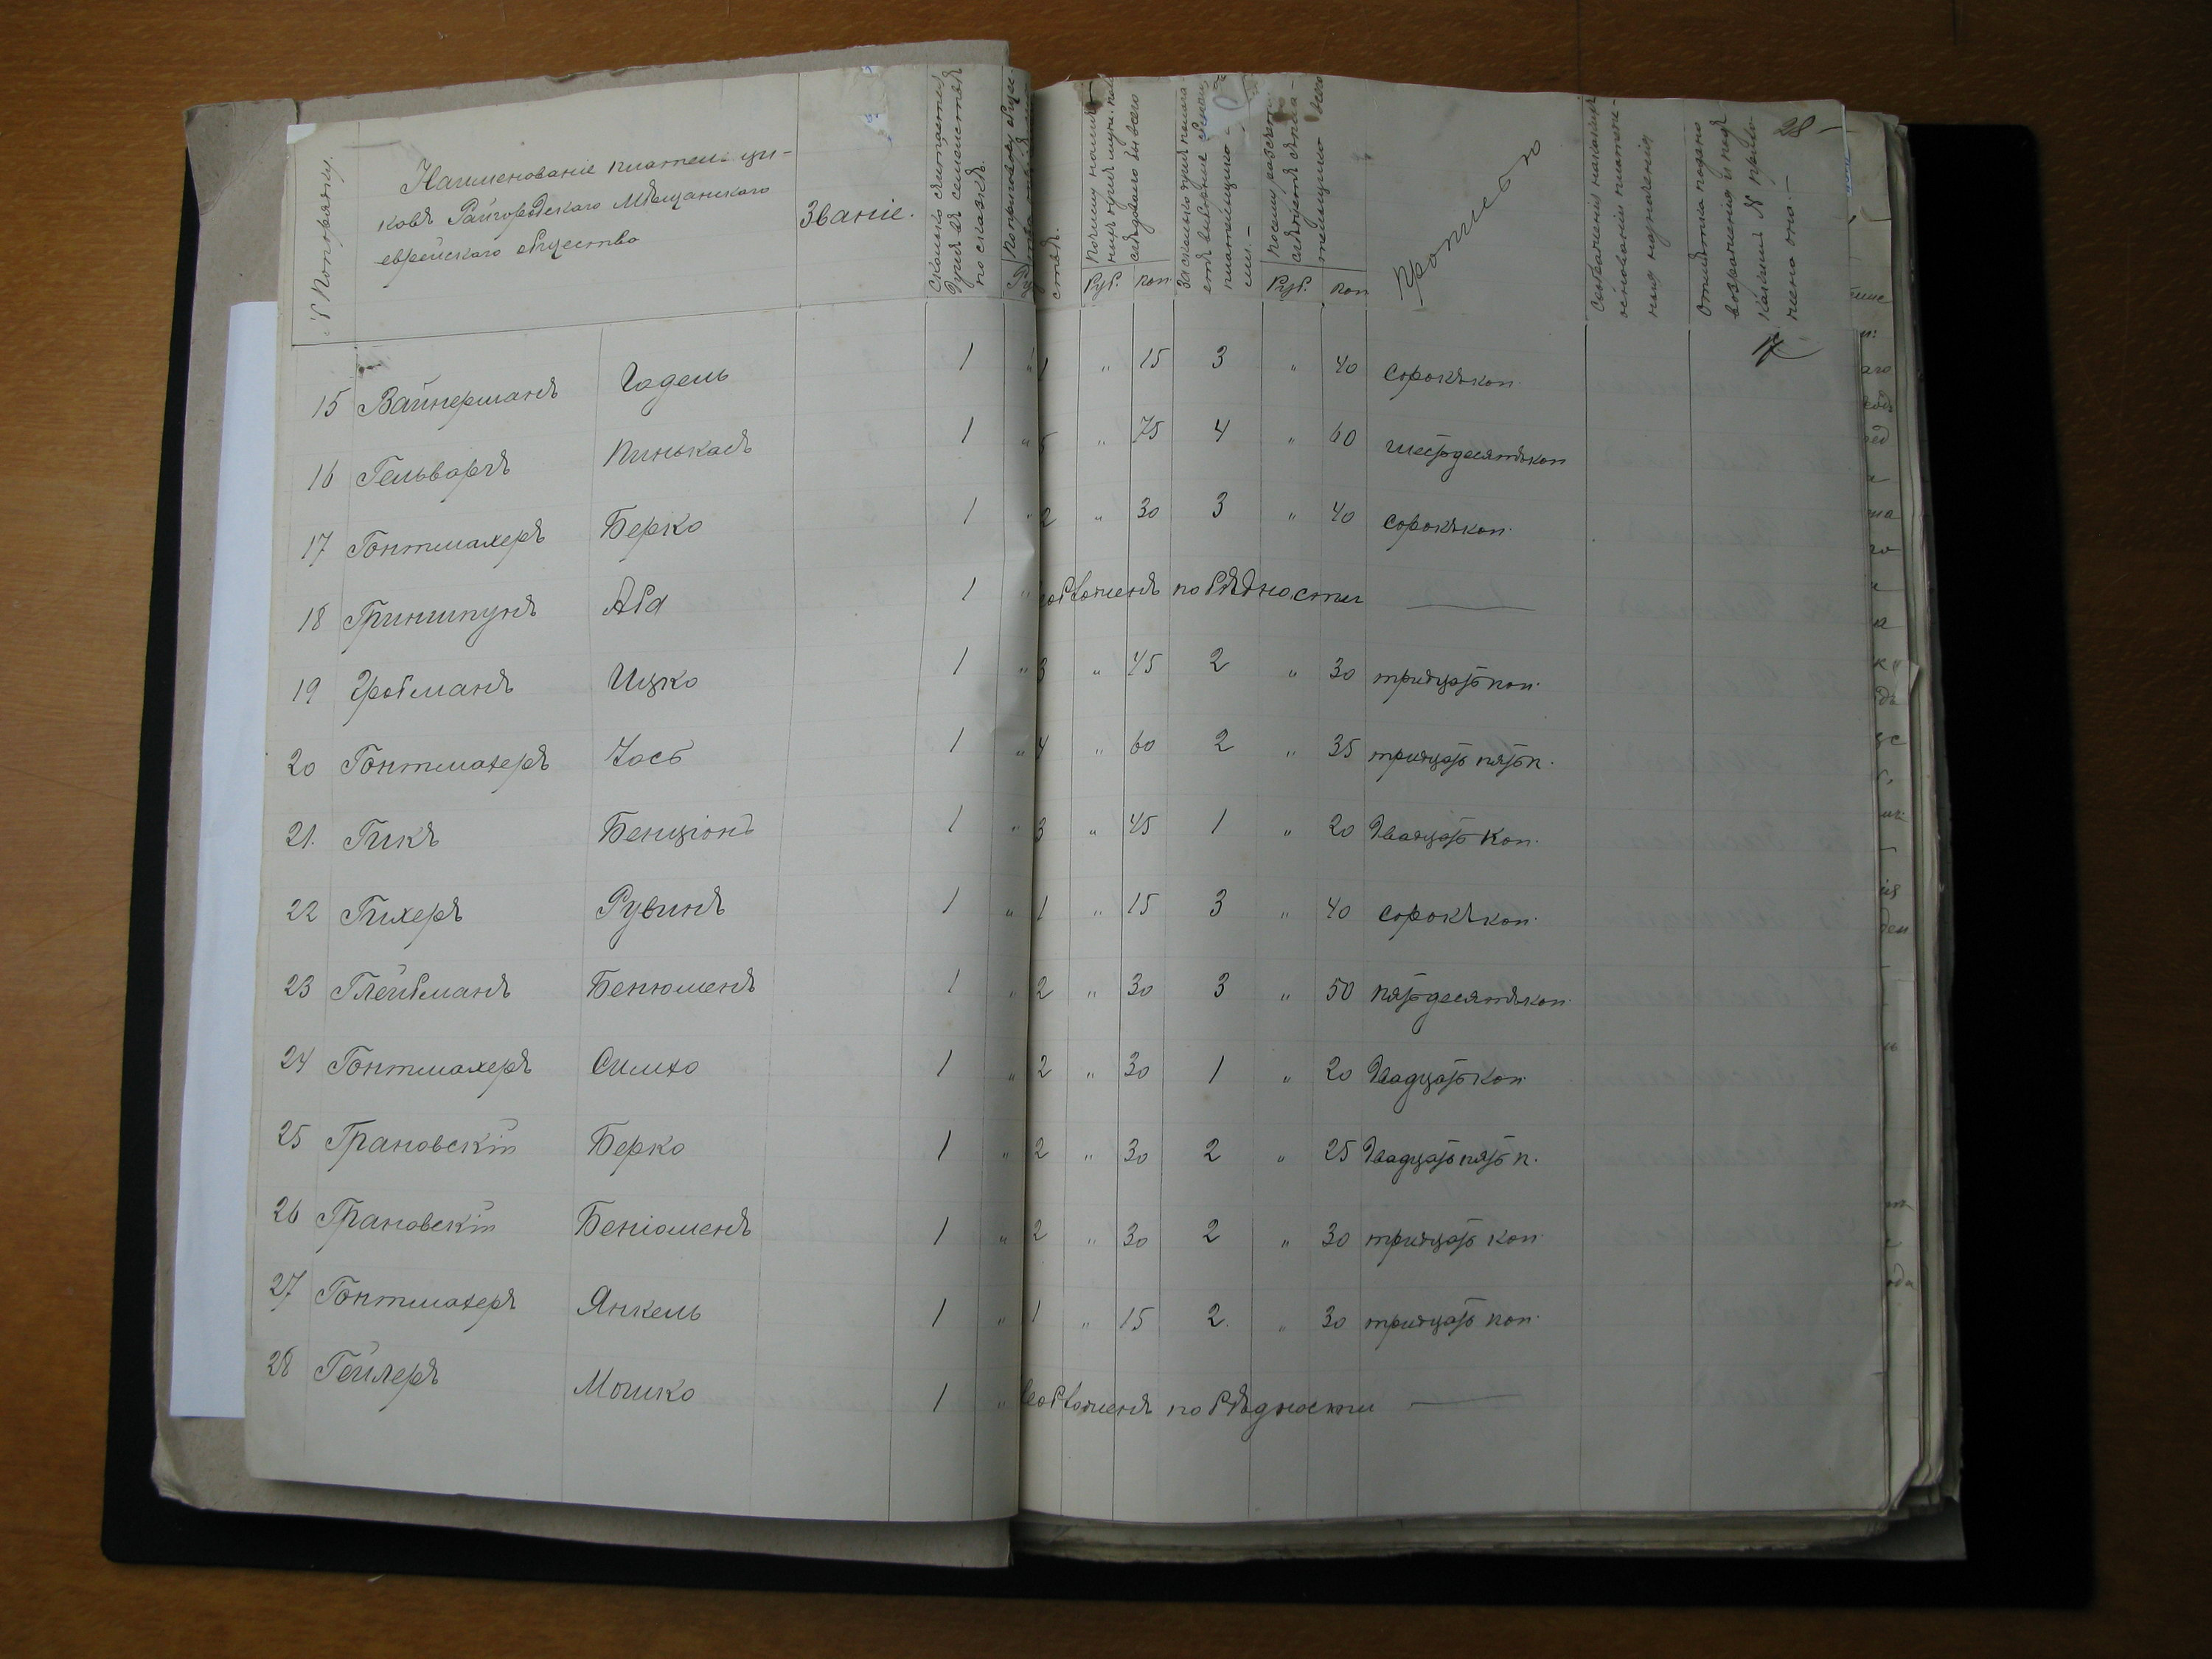 № По порядку.
Наименованіе плательщи-
ковъ Райгородскаго Мѣщанскаго
еврейскаго общества
Званіе.
Сколько считается
душъ въ семействѣ
по сказкѣ.
По приговору общес-
ства.
следовало бы всего
Руб. коп.
За сколько душъ полага
плательщико-
ми.-
Руб. коп
Прописью
основаніи плате-
28-
17
15 Вайнерманъ Гадель 1 " 1 " 15 3 " 40 сорокъ коп.
16 Гельваргъ Пинькасъ 1 " 5 " 75 4 " 60 шестьдесятъ коп
17 Гонтмахеръ Берко 1 " 2 " 30 3 " 40 сорокъ коп.
18 Гриншпунъ Аба 1 " по бѣдности
19 Гробманъ Ицко 1 " 3 " 45 2 " 30 тридцать коп.
20 Гонтмахеръ Іось 1 " 4 " 60 2 " 35 тридцать пять к.
21. Гикъ Бенціонъ 1 " 3 " 45 1 " 20 Двадцать коп.
22 Гихеръ Рувинъ 1 " 1 " 15 3 " 40 сорокъ коп.
23 Глейбманъ Бенюменъ 1 " 2 " 30 3 " 50 пятьдесятъ коп.
24 Гонтмахеръ Симхо 1 " 2 " 30 1 " 20 Двадцать коп.
25 Грановскій Берко 1 " 2 " 30 2 " 25 Двадцать пять к.
26 Грановскій Беніоменъ 1 " 2 " 30 2 " 30 тридцать коп.
27 Гонтмахеръ Янкель 1 " 1 " 15 2. " 30 тридцать коп.
28 Гейлеръ Мошко 1 " по бѣдности